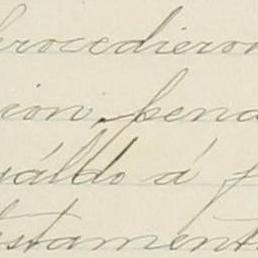 procedieron
ción pena
uáldo á f
testament